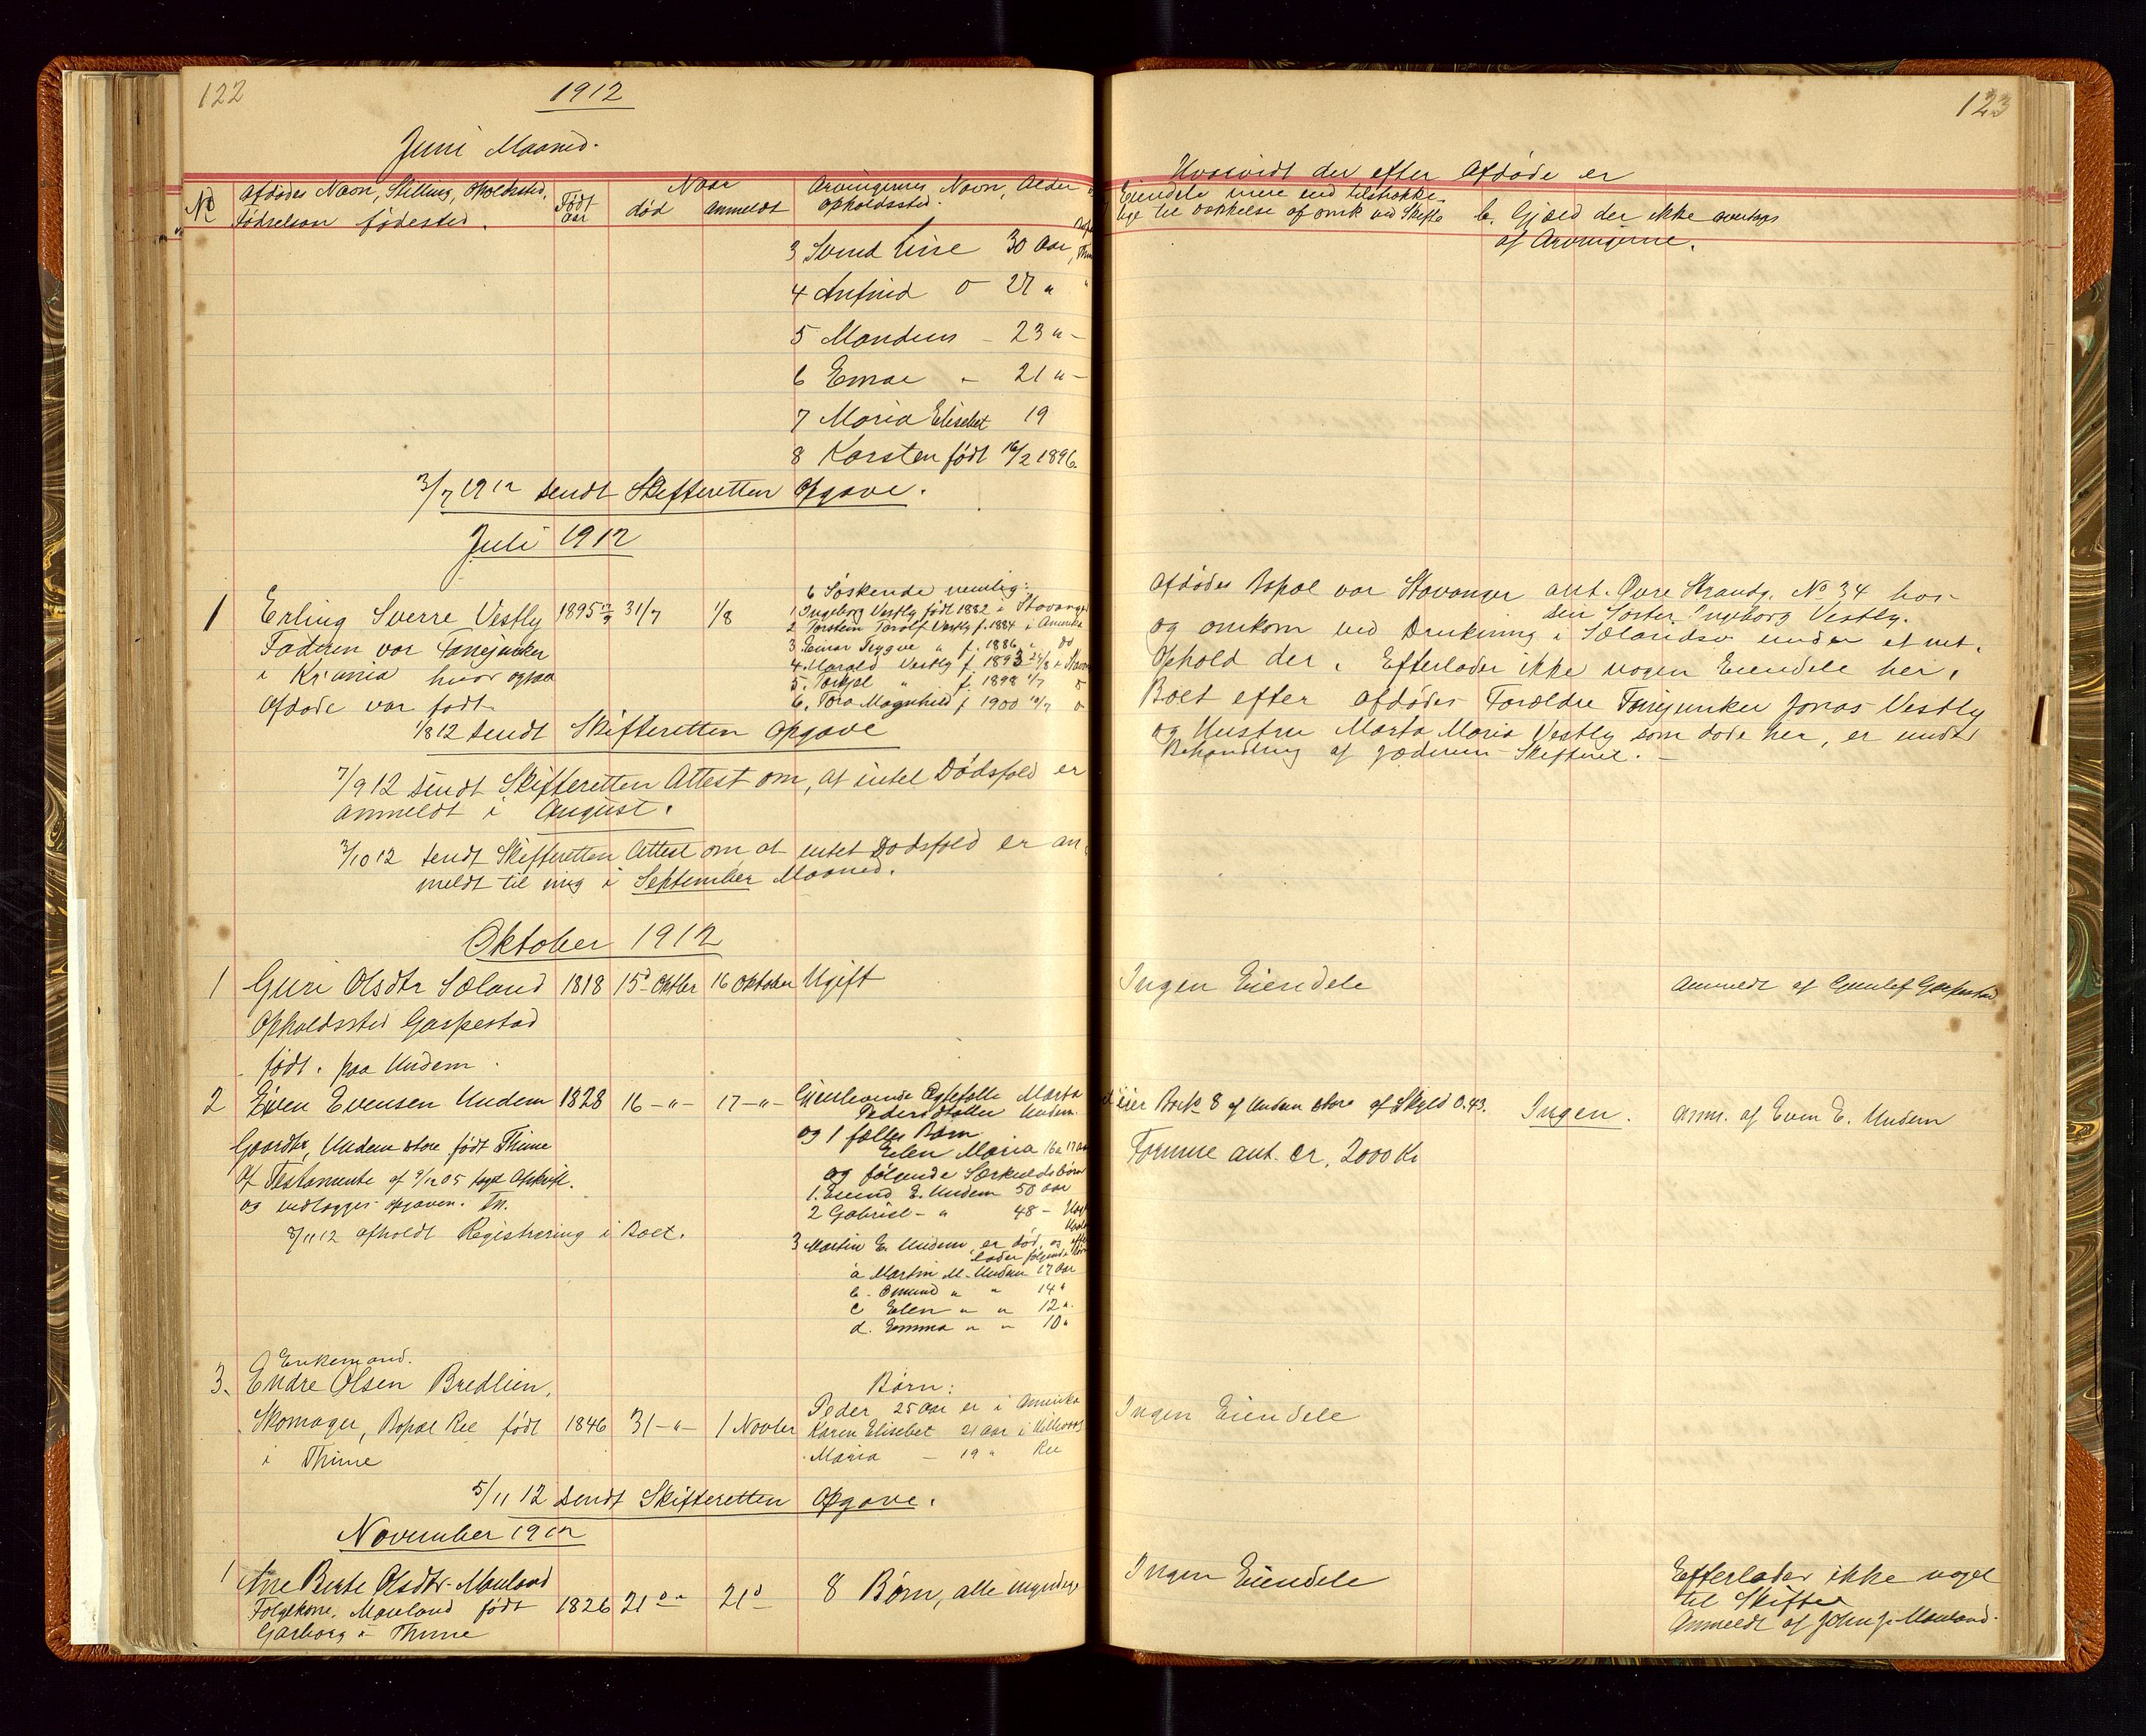 122
1912
Juni Maaned.
No
Afdødes Navn, Stilling, Opholdssted,
Fødselsaar fødested.
Født
aar
Naar
død
anmeldt
Arvingernes Navn, Alder
Opholdssted.
3 Svend Line 30 Aar,
4 Anfind 0 27 "
5 Mandius - 23 " -
6 Einar - 21 " -
7 Maria Elisebet 19
8 Karsten født 16/2 1896
3/7 1912 sendt Skifteretten Opgave.
Juli 1912
1 Erling Sverre Vestly 1895 31/7 1/8
Faderen var Fanejunker
i Kr.ania hvor ogsaa
Afdøde var født
6 Søskende nemlig:
1 Ingeborg Vestly født 1882 i Stavanger
2 Torstein Torolf Vestly f. 1884 i Amerika
3 Einar Trygve " f. 1886 " do
4 Harald Vestly f 1893 24/8 i Stav
5. Torkel " f. 1898 1/7
6. Tora Magnhild f 1900 10/7
1/8 12 sendt Skifteretten Opgave
7/9 12 sendt Skifteretten Attest om, at intet Dødsfald er
anmeldt i August.
3/10 12 sendt Skifteretten Attest om at intet Dødsfald er an
meldt til mig i September Maaned.
Oktober 1912
1 Guri Olsdtr Sæland 1818 15d Oktbr 16 Oktober Ugift
Opholdssted Gaspestad
født. paa Undem
2 Even Evensen Undem 1828 16 - " - 17 - " -
Gaardbr, Undem store født Thime
Af Testamente af 9/12 05 tagt Afskrift.
og vedlægges opgaven.
8/11 12 afholdt Registrering i Boet.
Gjenlevende Ægtefælle Marta
Pedersdatter Undem.
og 1 fælles Barn
Elen Maria 16 a 17 aar
og følgende Særkuldsbørn
1. Eivind E. Undem 50 aar
2 Gabriel - " 48 -
3 Martin E. Undem, er død, og efter
lader følgende Børn
a Martin M. Undem 17 Aar
b - Omund " " 14 "
c Elen " " 12 "
d. Emma " " 10 "
Enkemand.
3. Endre Olsen Bredlien,
Skomager, Bopæl Ree født 1846 31 - " - 1 Novbr
i Thime
Børn:
Peder 25 Aar er i Amerika
Karen Elisebet 21 aar i
Maria - 19 " Ree
5/11 12 sendt Skifteretten Opgave.
November 1912
1 Ane Berte Olsdtr. Mauland
Folgekone, Mauland født 1826 21d " 21d
Garborg i Thime
8 Børn, alle myndige
123
Hvorvidt der efter Afdøde er
Eiendele mere end tilstrække-
lige til Dækkelse af omk ved Skifte
b. Gjæld der ikke overtages
af Arvingerne.
Afdødes Bopæl var Stavanger ant. Øvre Strandg. No 34 hos
sin Søster Ingeborg Vestly.
og omkom ved Drukning i Sælandsv under et mt.
Ophold der. Efterlader ikke nogen Eiendele her.
Boet efter afdødes Forældre Fanejunker Jonas Vestly
og Hustru Marta Maria Vestly som døde her, er under
Behandling af Jæderens Skifteret. -
Ingen Eiendele
Anmeldt af Gunlef Gaspestad
eier Brk 8 af Undem store af Skyld 0.43.
Formue ant. cr. 2000 Kr
Ingen.
anm. af Even E. Undem
Ingen Eiendele
Ingen Eiendele
Efterlader ikke noget
til Skifte
Anmeldt af John J. Mauland.